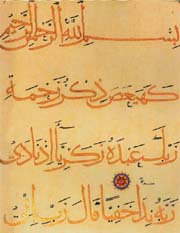 بسم الله الرحمن الرحيم
كهيعص ذكر رحمة
ربك عبده زكريا اذ نادى
ربه نداء خفيا قال رب انى